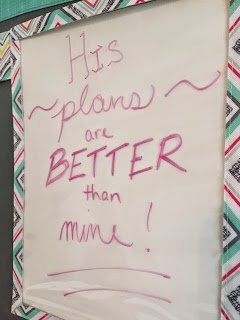 His
~ plans ~
are
BETTER
than
mine!